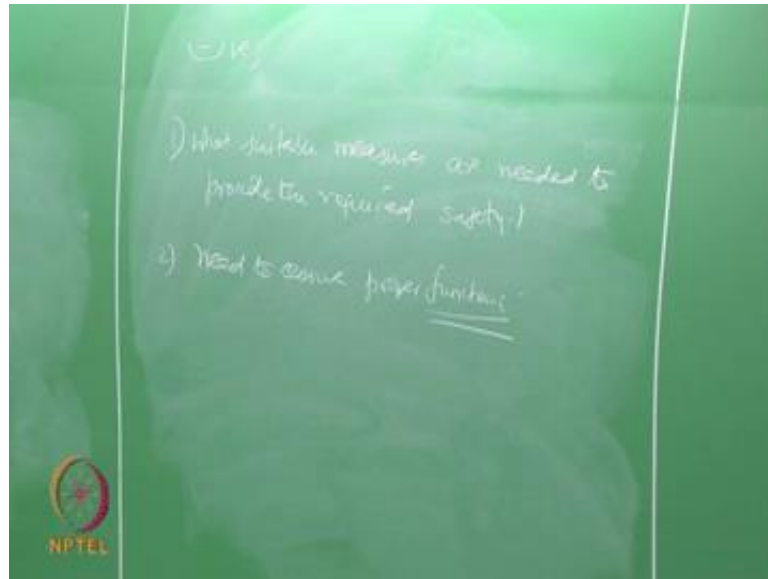 1) What suitable measures are needed to
provide the required safety?
2) Need to ensure proper functions
NPTEL